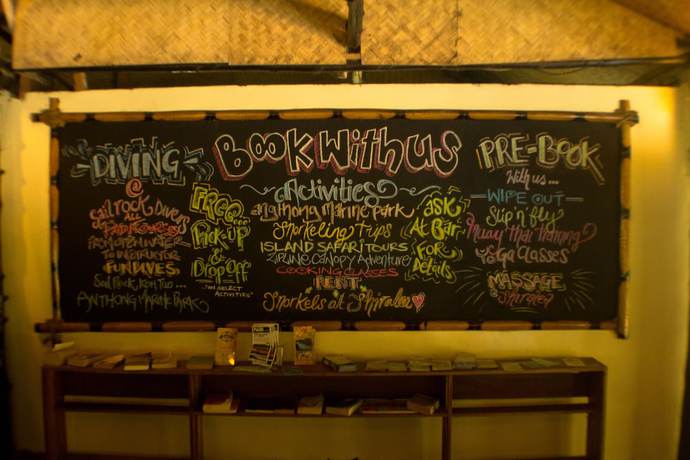 DIVING
@
Sail rock Divers
ALL
PADI COURSES
FROM OPEN WATER
TO INSTRUCTOR
FUN DIVES:
Sail Rock, Koh Tao ...
ANTHONG MARINE PARK
FREE...
Pick-up
&
Drop off
ON SELECT
ACTIVITIES
BOOK WITH US
activities
angthong Marine park
Snorkeling Trips
ISLAND SAFARI TOURS
ZIPLINE CANOPY ADVENTURE
COOKING CLASSES
RENT
Snorkels at Shiralea
ASK
At BAR
FOR
Details
PRE-BOOK
With us ...
WIPE OUT
Sup 'n fly
Muay thai training
YOGA CLASSES
MASSAGE
@ Shiralea